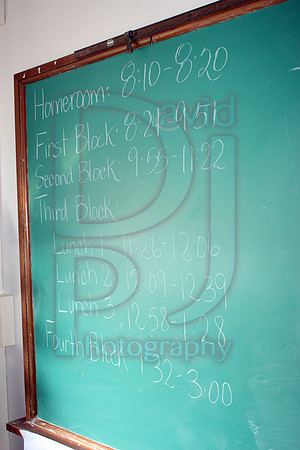 Homeroom: 8:10-8:20
First Block: 8:24-9:51
Second Block: 9:55-11:22
Third Block:
Lunch 1 11:26-12:06
Lunch 2 12:09-12:39
Lunch 3 12:58-1:28
Fourth Block 1:32-3:00
David
PJ
Photography